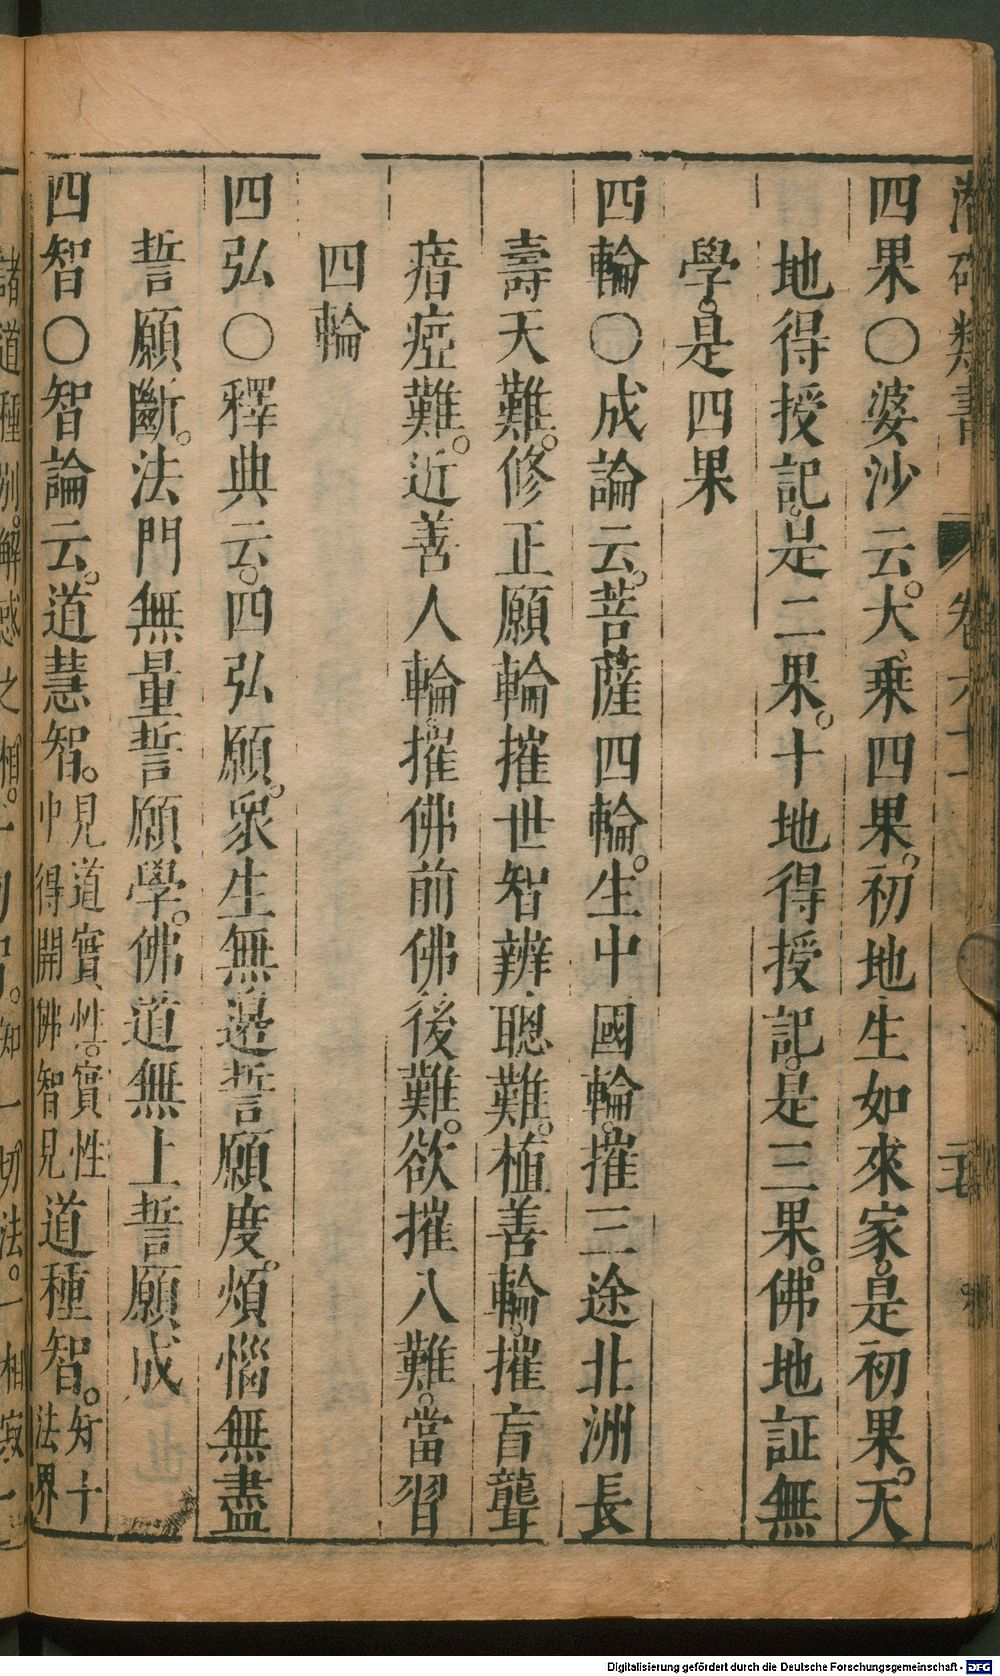 潛確類書
卷六十
四果〇婆沙云。大乘四果。初地生如來家。是初果。天
地得授記。是二果。十地得授記。是三果。佛地証無
學。是四果
四輪〇成論云。菩薩四輪。生中國輪。摧三途北洲長
壽天難。修正願輪摧世智辨聰難。植善輪。摧盲聾
瘖瘂難。近善人輪。摧佛前佛後難。欲摧八難。當習
四輪
四弘〇釋典云。四弘願。眾生無邊誓願度。煩惱無盡
誓願斷。法門無量誓願學。佛道無上誓願成
四智〇智論云。道慧智。見道實性。實性
中得開佛智見道種智。知十
法界
諸道種別。解惑之相。一切智。知一切法。一相寂
Digitalisierung gefördert durch die Deutsche Forschungsgemeinschaft - DFG